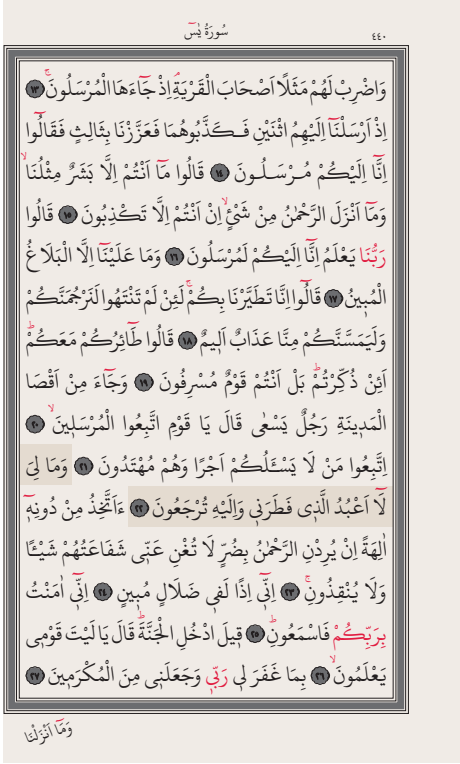 سُورَةُ يٰسٓ
٤٤٠
وَاضْرِبْ لَهُمْ مَثَلًا اَصْحَابَ الْقَرْيَةِۘ اِذْ جَٓاءَهَا الْمُرْسَلُونَۚ ١٣
اِذْ اَرْسَلْنَٓا اِلَيْهِمُ اثْنَيْنِ فَكَذَّبُوهُمَا فَعَزَّزْنَا بِثَالِثٍ فَقَالُٓوا
اِنَّٓا اِلَيْكُمْ مُرْسَلُونَ ١٤ قَالُوا مَٓا اَنْتُمْ اِلَّا بَشَرٌ مِثْلُنَاۙ
وَمَٓا اَنْزَلَ الرَّحْمٰنُ مِنْ شَيْءٍۙ اِنْ اَنْتُمْ اِلَّا تَكْذِبُونَ ١٥ قَالُوا
رَبُّنَا يَعْلَمُ اِنَّٓا اِلَيْكُمْ لَمُرْسَلُونَ ١٦ وَمَا عَلَيْنَٓا اِلَّا الْبَلَاغُ
الْمُبِينُ ١٧ قَالُٓوا اِنَّا تَطَيَّرْنَا بِكُمْۚ لَئِنْ لَمْ تَنْتَهُوا لَنَرْجُمَنَّكُمْ
وَلَيَمَسَّنَّكُمْ مِنَّا عَذَابٌ اَلِيمٌ ١٨ قَالُوا طَٓائِرُكُمْ مَعَكُمْۜ
اَئِنْ ذُكِّرْتُمْۜ بَلْ اَنْتُمْ قَوْمٌ مُسْرِفُونَ ١٩ وَجَٓاءَ مِنْ اَقْصَا
الْمَدِينَةِ رَجُلٌ يَسْعٰى قَالَ يَا قَوْمِ اتَّبِعُوا الْمُرْسَلِينَۙ ٢٠
اِتَّبِعُوا مَنْ لَا يَسْـَٔلُكُمْ اَجْرًا وَهُمْ مُهْتَدُونَ ٢١ وَمَا لِيَ
لَٓا اَعْبُدُ الَّذِي فَطَرَنِي وَاِلَيْهِ تُرْجَعُونَ ٢٢ ءَاَتَّخِذُ مِنْ دُونِهِٓ
اٰلِهَةً اِنْ يُرِدْنِ الرَّحْمٰنُ بِضُرٍّ لَا تُغْنِ عَنِّي شَفَاعَتُهُمْ شَيْـًٔا
وَلَا يُنْقِذُونِۚ ٢٣ اِنِّٓي اِذًا لَفِي ضَلَالٍ مُبِينٍ ٢٤ اِنِّٓي اٰمَنْتُ
بِرَبِّكُمْ فَاسْمَعُونِۜ ٢٥ قِيلَ ادْخُلِ الْجَنَّةَۜ قَالَ يَا لَيْتَ قَوْمِي
يَعْلَمُونَۙ ٢٦ بِمَا غَفَرَ لِي رَبِّي وَجَعَلَنِي مِنَ الْمُكْرَمِينَ ٢٧
وَمَٓا اَنْزَلْنَا